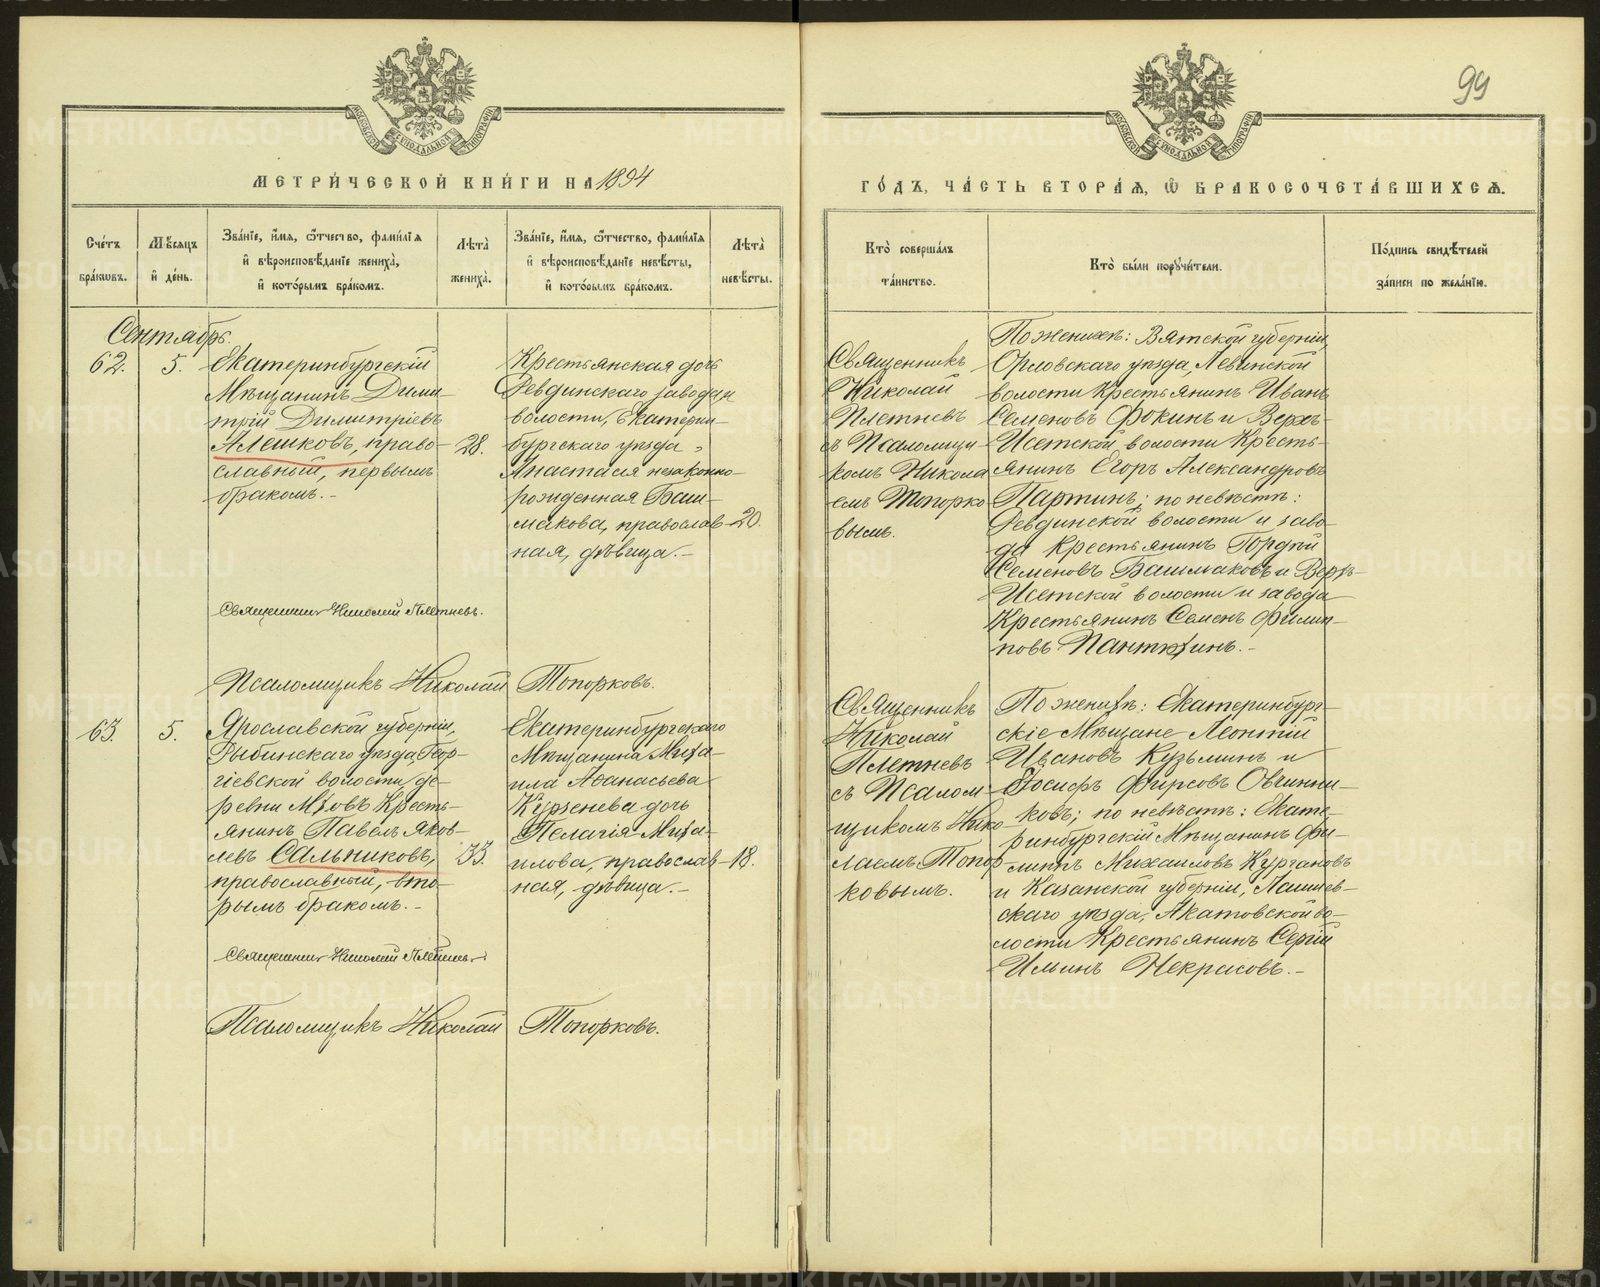 99
МОСКОВСКОЙ СѴНОДАЛЬНОЙ ТИПОГРАФІИ
МОСКОВСКОЙ СѴНОДАЛЬНОЙ ТИПОГРАФІИ
МЕТРИ́ЧЕСКОЙ КНИ́ГИ НА 1894
ГО́ДЪ, ЧА́СТЬ ВТОРА́Ѧ, Ѡ҆ БРАКОСОЧЕТА́ВШИХСѦ.
Сче́тъ
бра́кѡвъ.
Мѣ́сѧцъ
и҆ де́нь.
Зва́нїе, и҆́мѧ, ѻ҆́тчество, фами́лїѧ
и҆ вѣроисповѣ́данїе жениха̀,
и҆ кото́рымъ бра́комъ.
Лѣта̀
жениха̀.
Зва́нїе, и҆́мѧ, ѻ҆́тчество, фами́лїѧ
и҆ вѣроисповѣ́данїе невѣ́сты,
и҆ кото́рымъ бра́комъ.
Лѣта̀
невѣ́сты.
Кто̀ соверша́лъ
та́инство.
Кто̀ бы́ли порꙋчи́тели.
По́дпись свидѣ́телей
за́писи по жела́нїю.
Сентябрь.
62.
5.
Екатеринбургскій
Мѣщанинъ Дими-
трій Димитріевъ
Алешковъ, право-
славный, первымъ
бракомъ.-
28.
Крестьянская дочь
Ревдинскаго завода и
волости, Екатерин-
бургскаго уѣзда,
Анастасія незаконно-
рожденная Баш-
макова, православ-
ная, дѣвица.-
20.
Священникъ
Николай
Плетневъ
съ Псаломщи-
комъ Никола-
емъ Топорко-
вымъ.
По женихѣ: Вятской губерніи,
Орловскаго уѣзда, Левинской
волости Крестьянинъ Иванъ
Семеновъ Фокинъ и Верхъ-
Исетской волости Кресть-
янинъ Егоръ Александровъ
Партинъ; по невѣстѣ:
Ревдинской волости и заво-
да Крестьянинъ Гордѣй
Семеновъ Башмаковъ и Верхъ-
Исетской волости и завода
Крестьянинъ Семенъ Филип-
повъ Пантюхинъ.-
Священникъ Николай Плетневъ.
Псаломщикъ Николай Топорковъ.
63.
5.
Ярославской губерніи,
Рыбинскаго уѣзда, Геор-
гіевской волости, де-
ревни Мховъ Кресть-
янинъ Павелъ Яков-
левъ Сальниковъ,
православный, вто-
рымъ бракомъ.-
33.
Екатеринбургскаго
Мѣщанина Миха-
ила Аѳанасьева
Курзенева дочь
Пелагія Миха-
илова, православ-
ная, дѣвица.-
18.
Священникъ
Николай
Плетневъ
съ Псалом-
щикомъ Нико-
лаемъ Топор-
ковымъ.
По женихѣ: Екатеринбург-
скіе Мѣщане Леонтій
Ивановъ Кузьминъ и
Іосифъ Фирсовъ Овчинни-
ковъ; по невѣстѣ: Екате-
ринбургскій Мѣщанинъ Фи-
липпъ Михаиловъ Курчановъ
и Казанской губерніи, Лаишев-
скаго уѣзда, Акатовской во-
лости Крестьянинъ Сергій
Ильинъ Некрасовъ.-
Священникъ Николай Плетневъ.
Псаломщикъ Николай Топорковъ.
METRIKI.GASO-URAL.RU